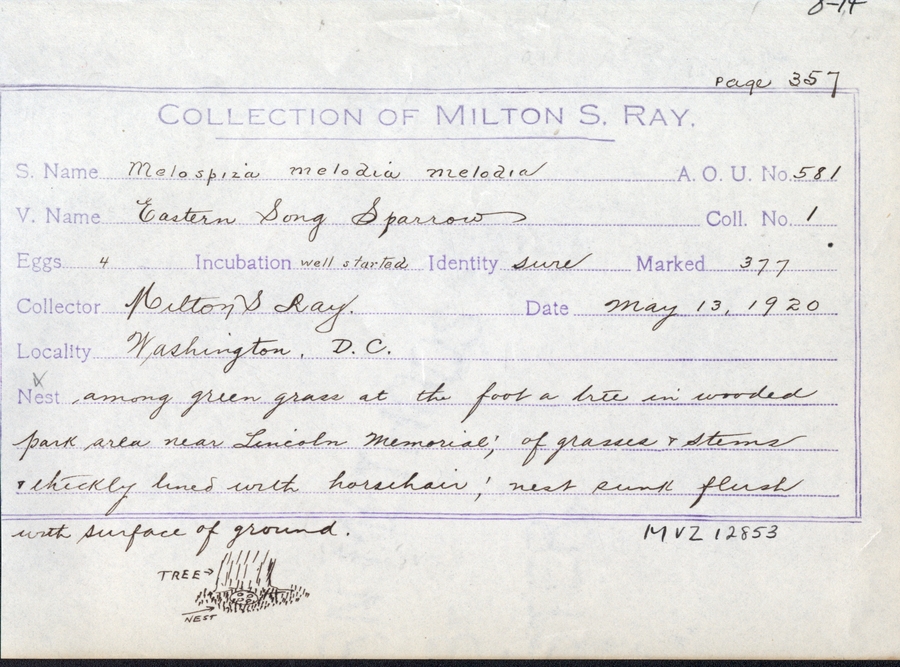 8-14
Page 357
COLLECTION OF MILTON S. RAY.
S. Name Melospiza melodia melodia A. O. U. No. 581
V. Name Eastern Song Sparrow Coll. No. 1
Eggs 4 Incubation well started Identity sure Marked 377
Collector Milton S Ray. Date May 13, 1920
Locality Washington, D.C.
Nest among green grass at the foot a tree in wooded
park area near Lincoln Memorial; of grasses & stems
& thickly lined with horsehair; nest sunk flush
with surface of ground.
MVZ 12853
TREE→
NEST